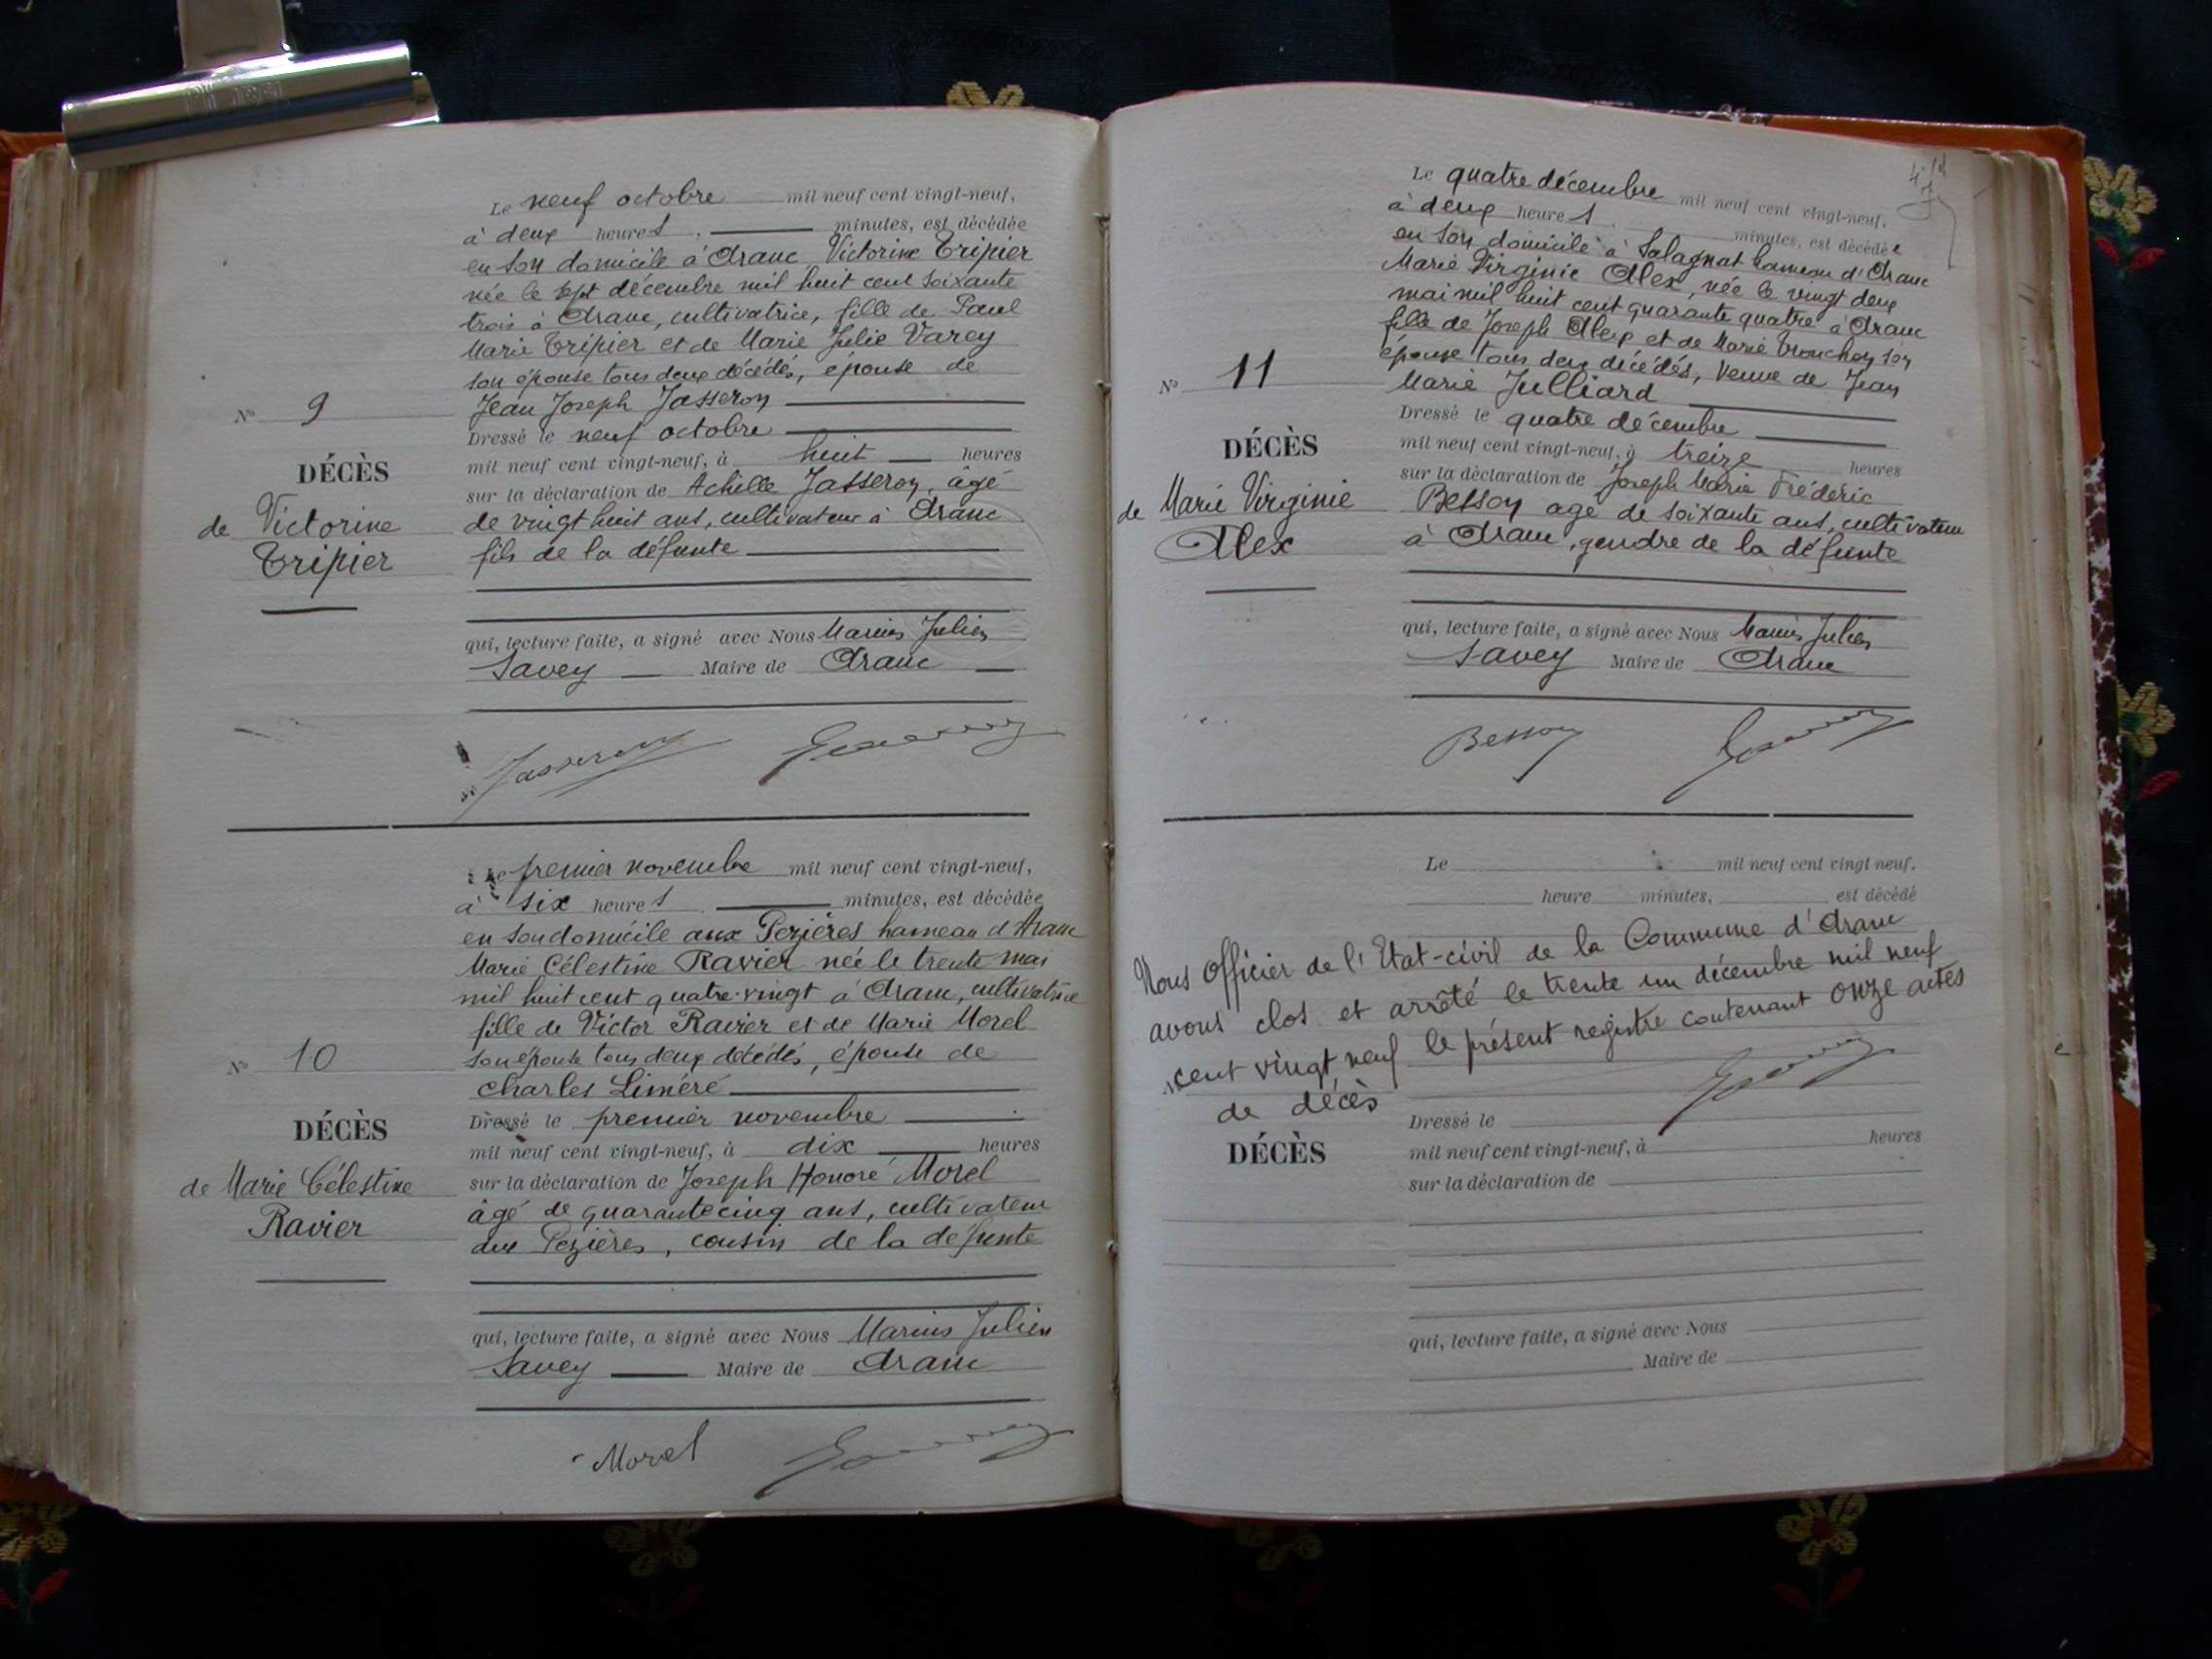 Le neuf octobre mil neuf cent vingt-neuf,
à deux heures minutes, est décédée
en son domicile à Aranc Victorine Tripier
née le sept décembre mil huit cent soixante
trois à Aranc, cultivatrice, fille de Paul
Marie Tripier et de Marie Julie Varey
son épouse tous deux décédés, épouse de
Jean Joseph Jasseron
Dressé le neuf octobre
mil neuf cent vingt-neuf, à huit heures
sur la déclaration de Achille Jasseron, âgé
de vingt huit ans, cultivateur à Aranc
fils de la défunte
qui, lecture faite, a signé avec Nous Marius Julien
Savey Maire de Aranc
Jasseron
N° 9
DÉCÈS
de Victorine
Tripier
Le premier novembre mil neuf cent vingt-neuf,
à six heures minutes, est décédée
en son domicile aux Pezières hameau d'Aranc
Marie Célestine Ravier née le trente mai
mil huit cent quatre-vingt à Aranc, cultivatrice
fille de Victor Ravier et de Marie Morel
son épouse tous deux décédés, épouse de
Charles Liméré
Dressé le premier novembre
mil neuf cent vingt-neuf, à dix heures
sur la déclaration de Joseph Honoré Morel
âgé de quarante cinq ans, cultivateur
aux Pezières, cousin de la défunte
qui, lecture faite, a signé avec Nous Marius Julien
Savey Maire de Aranc
Morel
N° 10
DÉCÈS
de Marie Célestine
Ravier
Le quatre décembre mil neuf cent vingt-neuf,
à deux heures minutes, est décédée
en son domicile à Salagnat hameau d'Aranc
Marie Virginie Alex, née le vingt deux
mai mil huit cent quarante quatre à Aranc
fille de Joseph Alex et de Marie Trouchon son
épouse tous deux décédés, veuve de Jean
Marie Julliard
Dressé le quatre décembre
mil neuf cent vingt-neuf, à treize heures
sur la déclaration de Joseph Marie Frédéric
Besson agé de soixante ans, cultivateur
à Aranc, gendre de la défunte
qui, lecture faite, a signé avec Nous Marius Julien
Savey Maire de Aranc
Besson
N° 11
DÉCÈS
de Marie Virginie
Alex
Le mil neuf cent vingt neuf,
heure minutes, est décédé
Nous Officier de l'Etat-civil de la Commune d'Aranc
avons clos et arrêté le trente un décembre mil neuf
cent vingt neuf le présent registre contenant onze actes
de décès
Dressé le
DÉCÈS
mil neuf cent vingt-neuf, à heures
sur la déclaration de
qui, lecture faite, a signé avec Nous
Maire de